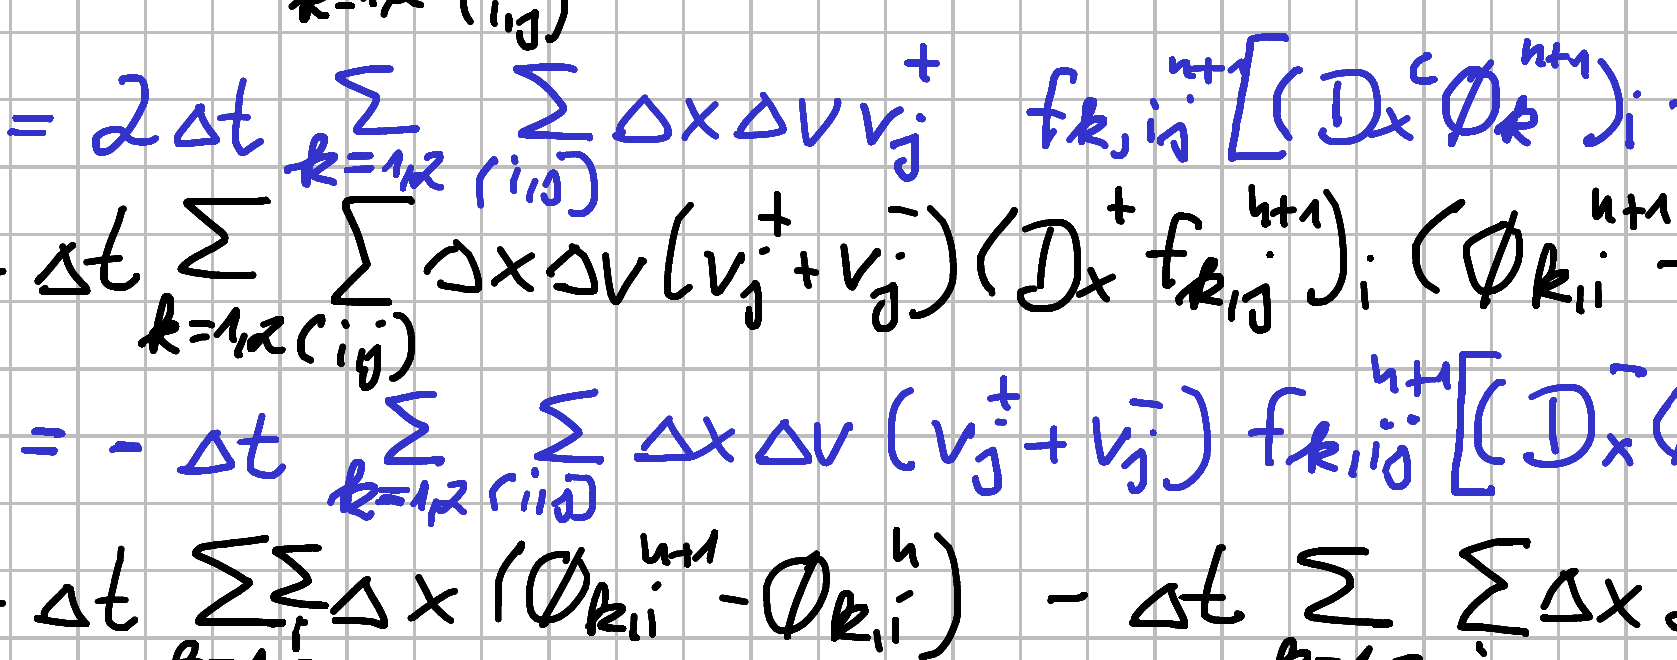 k=1,2 (i,j)
= 2Δt Σ_{k=1,2} Σ_{(i,j)} Δx Δv v_j^+ f_{k,ij}^{n+1} [(D_x^c ϕ_k^{n+1})_i
Δt Σ_{k=1,2} Σ_{(i,j)} Δx Δv (v_j^+ + v_j^-) (D_x^+ f_{k,ij}^{n+1})_i (ϕ_{k,i}^{n+1} -
= - Δt Σ_{k=1,2} Σ_{(i,j)} Δx Δv (v_j^+ + v_j^-) f_{k,ij}^{n+1} [(D_x^- (
Δt Σ Σ_i Δx (ϕ_{k,i}^{n+1} - ϕ_{k,i}^n) - Δt Σ Σ Δx